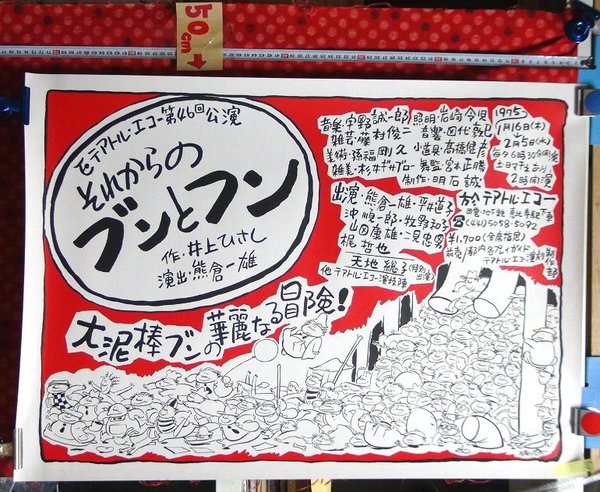 50cm
テアトル・エコー第46回公演
それからの
ブンとフン
作・井上ひさし
演出・熊倉一雄
大泥棒ブンの華麗なる冒険!
音楽・宇野誠一郎 照明・岩崎令児
雑芸・藤村俊二 音響・田代敦巳
美術・孫福剛久 小道具・高橋健彦
雑美・杉井ギサブロー 舞監・宮本正勝
制作・明石誠
出演・熊倉一雄・平井道子
沖順一郎・牧野和子
山田康雄・二見忠男
梶哲也
天地総子(特別出演)
他テアトル・エコー演技陣
1975
1月16日(木)
2月5日(水)
毎夕6時30分開演
2時開演
於テアトル・エコー
☎(441)5058・5092
¥1,700(全席指定)
テアトル・エコー演劇制作部